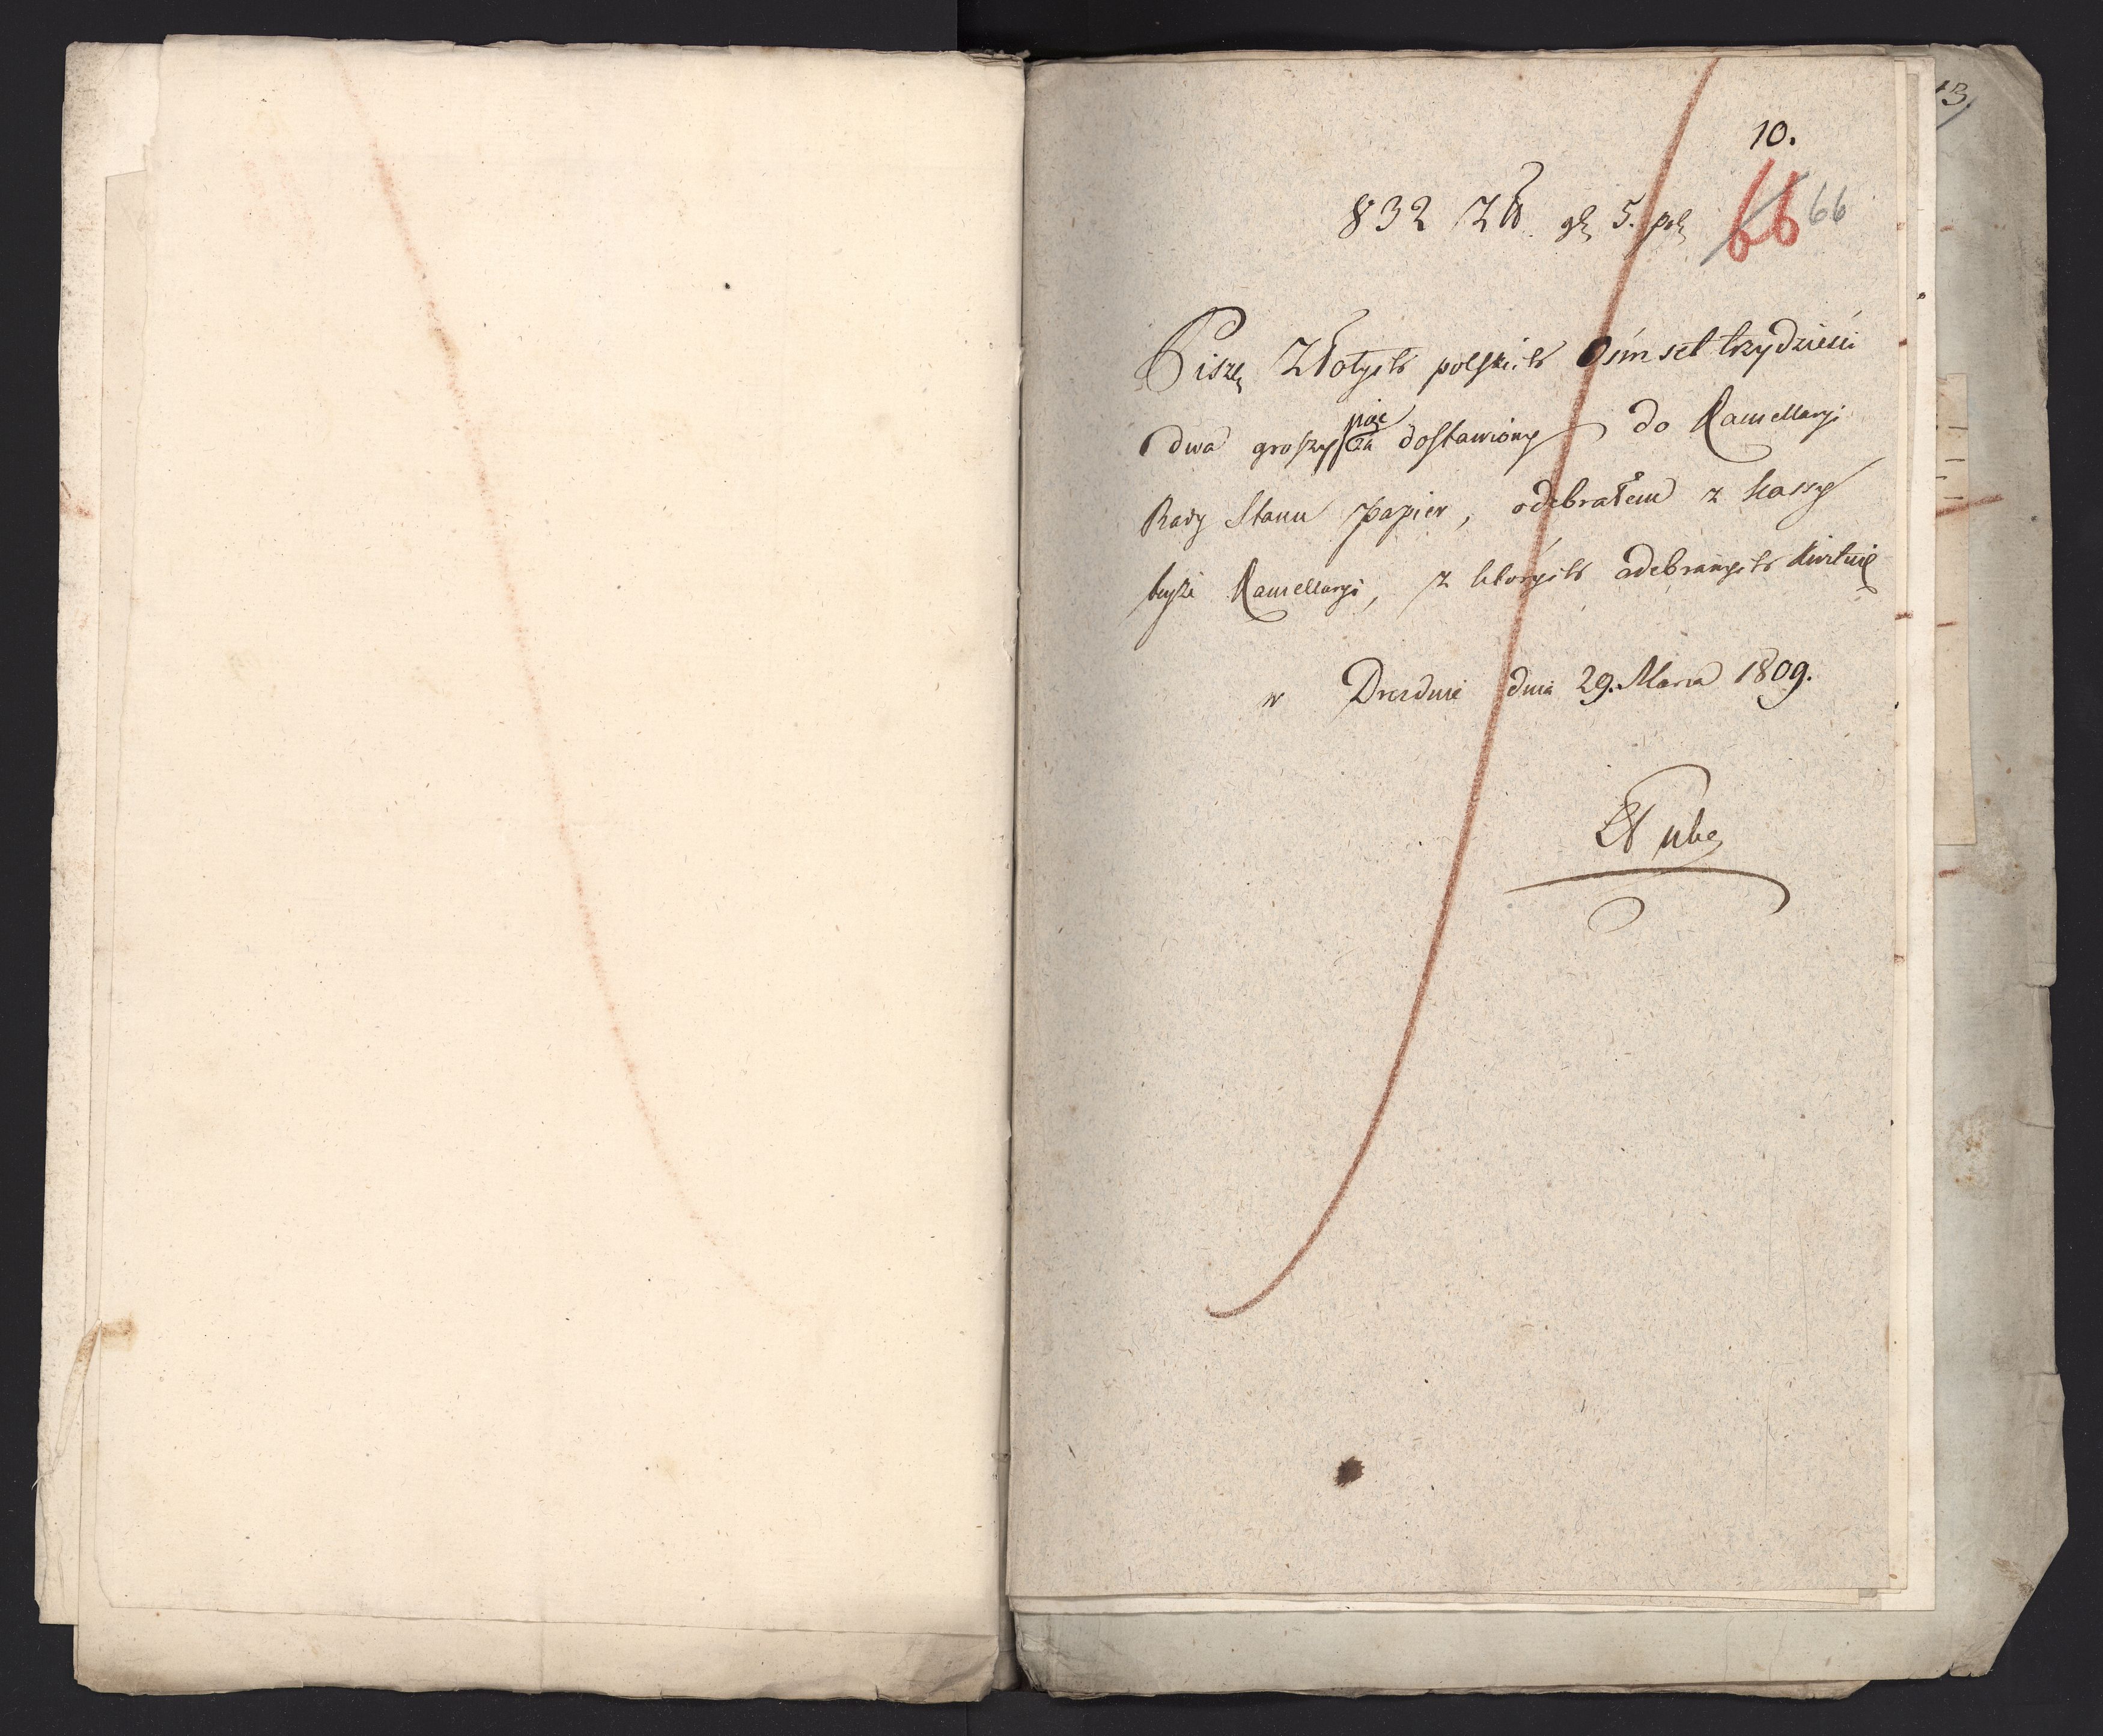 13
10.
832 Zł. gr 5. pol
66 66
Piszę Złotych polskich Ośmset trzydzieści
dwa groszy pięć za dostawiony do Kancellaryi
Rady Stanu papier, odebrałem z kassy
teyże Kancellaryi, z których odebranych kwituię
w Dreznie dnia 29. Marca 1809.